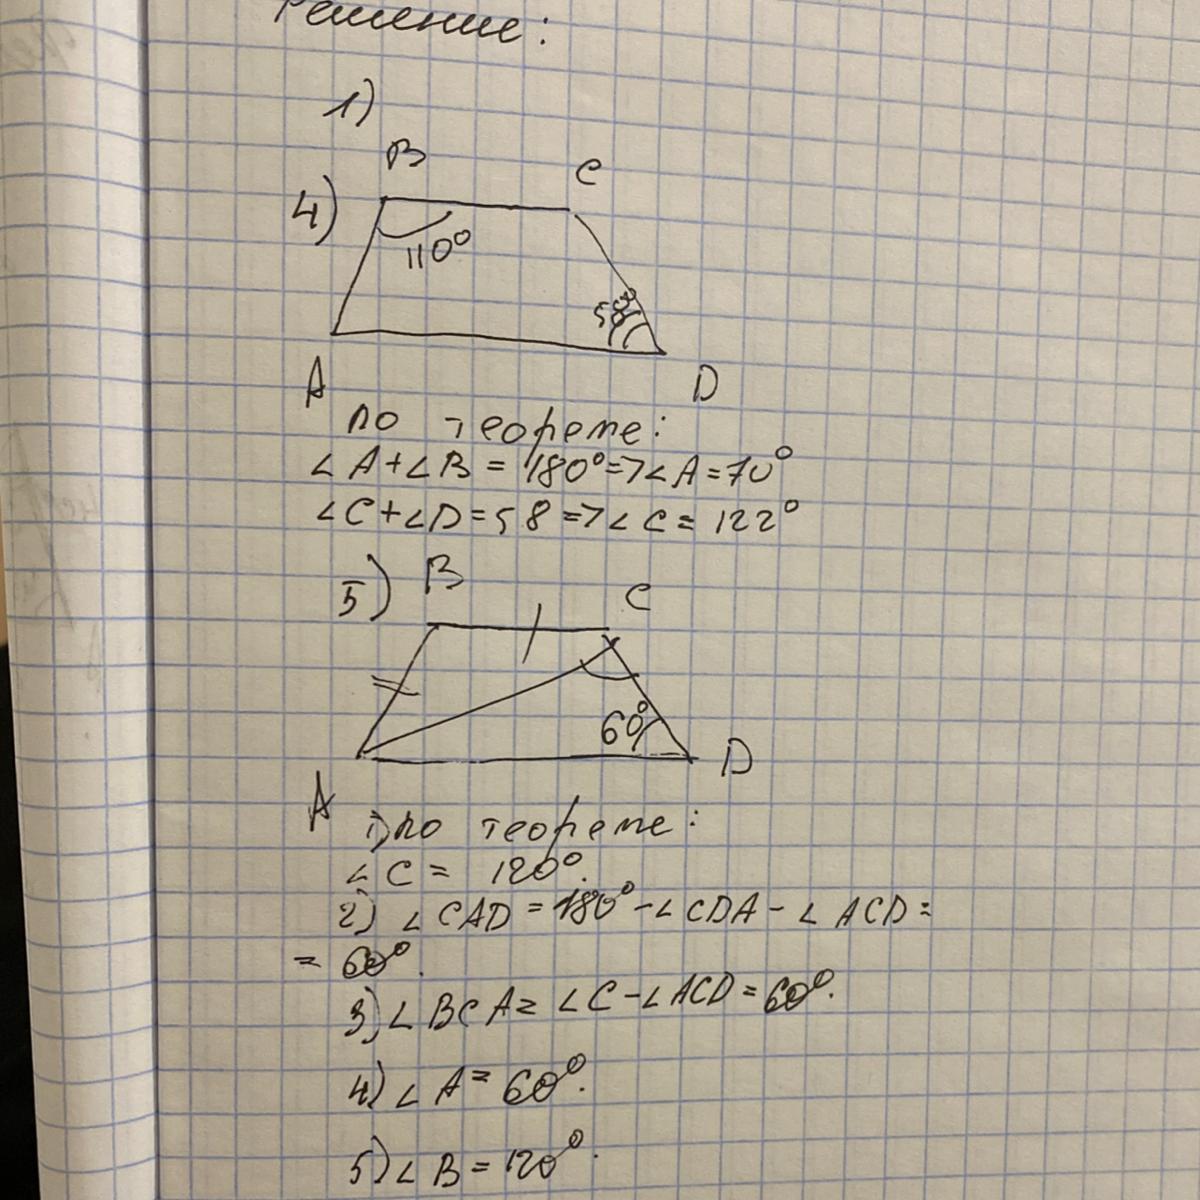 Решение:
1)
B C
4)
110°
58°
A D
по теореме:
∠A+∠B = 180°=>∠A=70°
∠C+∠D=58=>∠C=122°
5) B C
60°
D
A
1) по теореме:
∠C = 120°.
2) ∠CAD = 180°-∠CDA-∠ACD=
= 60°.
3) ∠BCA= ∠C-∠ACD=60°.
4) ∠A= 60°.
5) ∠B=120°.